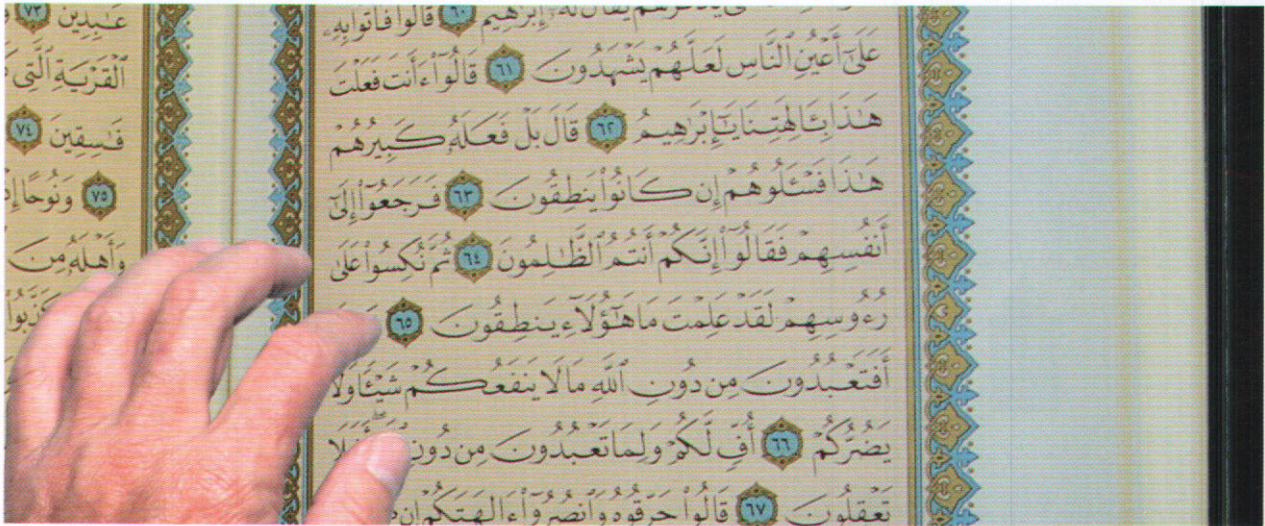 يَذْكُرُهُمْ يُقَالُ لَهُۥٓ إِبْرَٰهِيمُ ٦٠ قَالُوا۟ فَأْتُوا۟ بِهِۦ
عَلَىٰٓ أَعْيُنِ ٱلنَّاسِ لَعَلَّهُمْ يَشْهَدُونَ ٦١ قَالُوٓا۟ ءَأَنتَ فَعَلْتَ
هَـٰذَا بِـَٔالِهَتِنَا يَـٰٓإِبْرَٰهِيمُ ٦٢ قَالَ بَلْ فَعَلَهُۥ كَبِيرُهُمْ
هَـٰذَا فَسْـَٔلُوهُمْ إِن كَانُوا۟ يَنطِقُونَ ٦٣ فَرَجَعُوٓا۟ إِلَىٰٓ
أَنفُسِهِمْ فَقَالُوٓا۟ إِنَّكُمْ أَنتُمُ ٱلظَّـٰلِمُونَ ٦٤ ثُمَّ نُكِسُوا۟ عَلَىٰ
رُءُوسِهِمْ لَقَدْ عَلِمْتَ مَا هَـٰٓؤُلَآءِ يَنطِقُونَ ٦٥
أَفَتَعْبُدُونَ مِن دُونِ ٱللَّهِ مَا لَا يَنفَعُكُمْ شَيْـًٔا وَلَا
يَضُرُّكُمْ ٦٦ أُفٍّ لَّكُمْ وَلِمَا تَعْبُدُونَ مِن دُونِ أَفَلَا
تَعْقِلُونَ ٦٧ قَالُوا۟ حَرِّقُوهُ وَٱنصُرُوٓا۟ ءَالِهَتَكُمْ إِن
عَـٰبِدِينَ ٧٣
ٱلْقَرْيَةِ ٱلَّتِى
فَـٰسِقِينَ ٧٤
٧٥ وَنُوحًا
وَأَهْلَهُۥ مِنَ